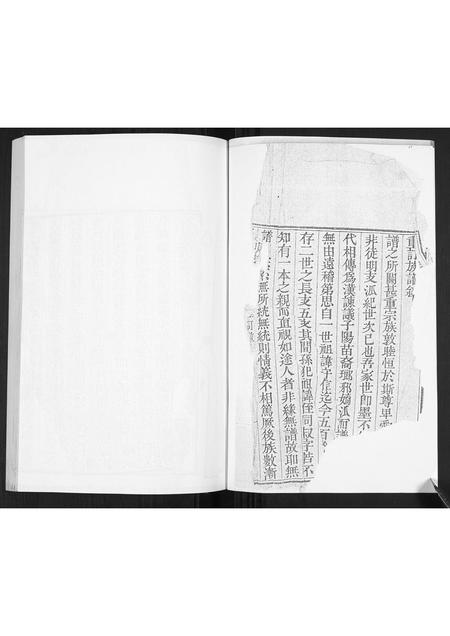 重訂族譜叙
譜之所關甚重宗族敦睦恒於斯尊卑
非徒明支派紀世次已也吾家世卽墨不
代相傳爲漢諫議子陽苗裔瑯邪嫡派而
無由遠稽第思自一世祖諱字信迄今五百
存二世之長支五支其間孫犯祖諱侄同叔字若不
知有一本之親而直視如途人者非緣無譜故耶無
譜 無所統無統則情義不相篤厥後族數漸